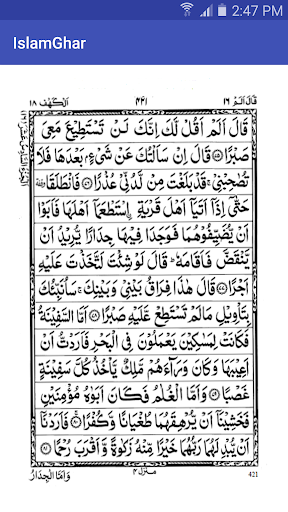 2:47 PM
IslamGhar
قَالَ اَلَمْ ١٦
٤٢١
اَلْكَهْف ١٨
قَالَ اَلَمْ اَقُلْ لَّكَ اِنَّكَ لَنْ تَسْتَطِيْعَ مَعِيَ
صَبْرًا ۝٧٥ قَالَ اِنْ سَاَلْتُكَ عَنْ شَيْءٍۭ بَعْدَهَا فَلَا
تُصٰحِبْنِيْ ۚ قَدْ بَلَغْتَ مِنْ لَّدُنِّيْ عُذْرًا ۝٧٦ فَانْطَلَقَا
حَتّٰۤى اِذَاۤ اَتَيَاۤ اَهْلَ قَرْيَةِ ِۨاسْتَطْعَمَاۤ اَهْلَهَا فَاَبَوْا
اَنْ يُّضَيِّفُوْهُمَا فَوَجَدَا فِيْهَا جِدَارًا يُّرِيْدُ اَنْ
يَّنْقَضَّ فَاَقَامَهٗ ؕ قَالَ لَوْ شِئْتَ لَتَّخَذْتَ عَلَيْهِ
اَجْرًا ۝٧٧ قَالَ هٰذَا فِرَاقُ بَيْنِيْ وَبَيْنِكَ ۚ سَاُنَبِّئُكَ
بِتَاْوِيْلِ مَا لَمْ تَسْتَطِعْ عَّلَيْهِ صَبْرًا ۝٧٨ اَمَّا السَّفِيْنَةُ
فَكَانَتْ لِمَسٰكِيْنَ يَعْمَلُوْنَ فِي الْبَحْرِ فَاَرَدْتُّ اَنْ
اَعِيْبَهَا وَكَانَ وَرَآءَهُمْ مَّلِكٌ يَّاْخُذُ كُلَّ سَفِيْنَةٍ
غَصْبًا ۝٧٩ وَاَمَّا الْغُلٰمُ فَكَانَ اَبَوٰهُ مُؤْمِنَيْنِ
فَخَشِيْنَاۤ اَنْ يُّرْهِقَهُمَا طُغْيَانًا وَّكُفْرًا ۝٨٠ فَاَرَدْنَاۤ
اَنْ يُّبْدِلَهُمَا رَبُّهُمَا خَيْرًا مِّنْهُ زَكٰوةً وَّاَقْرَبَ رُحْمًا ۝٨١
وَاَمَّا الْجِدَارُ
منزل ٤
421